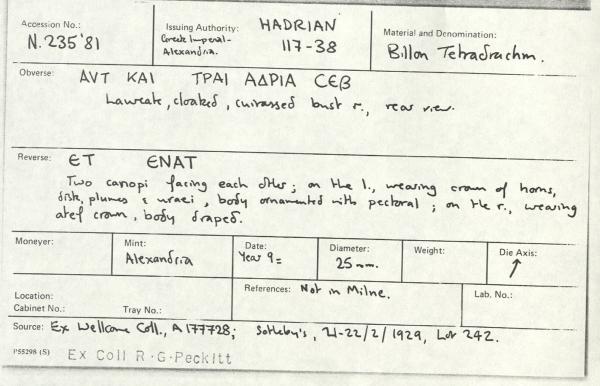 Accession No.:
N.235'81
Issuing Authority:
Greek Imperial-
Alexandria.
HADRIAN
117-38
Material and Denomination:
Billon Tetradrachm.
Obverse: ΑVΤ ΚΑΙ ΤΡΑΙ ΑΔΡΙΑ CЄΒ
Laureate, cloaked, cuirassed bust r., rear view.
Reverse: ЄΤ ЄΝΑΤ
Two canopi facing each other; on the l., wearing crown of horns,
disk, plumes & uraei, body ornamented with pectoral; on the r., wearing
atef crown, body draped.
Moneyer:
Mint:
Alexandria
Date:
Year 9=
Diameter:
25mm.
Weight:
Die Axis:
↑
Location:
Cabinet No.: Tray No.:
References: Not in Milne.
Lab. No.:
Source: Ex Wellcome Coll., A177728; Sotheby's, 21-22/2/1929, Lot 242.
P55298 (S) Ex Coll R.G.Peckitt